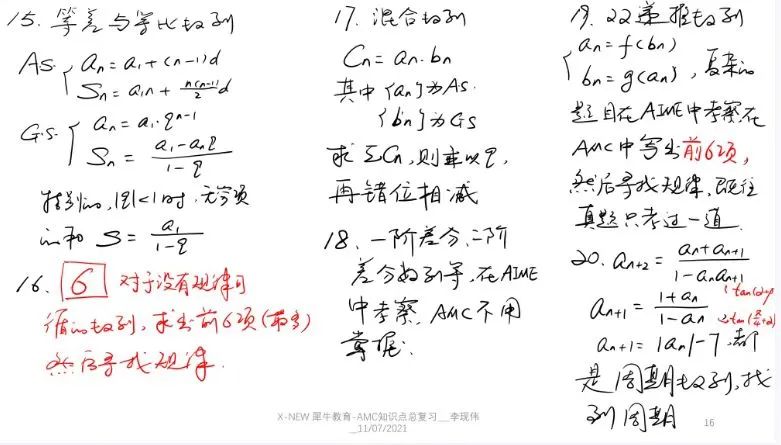 15. 等差与等比数列
A.S. { an = a1 + (n-1)d
Sn = a1n + n(n-1)/2 d
G.S. { an = a1·q^(n-1)
Sn = (a1 - anq)/(1 - q)
特别的, |q|<1时, 无穷项
的和 S = a1/(1-q)
16. 6 对于没有规律可
循的数列, 求出前6项(最多)
然后寻找规律.
17. 混合数列
Cn = an·bn
其中{an}为A.S.
{bn}为G.S
求ΣCn, 则乘以q,
再错位相减
18. 一阶差分、二阶
差分数列等, 在AIME
中考察, AMC不用
掌握.
19. 双递推数列
{ an = f(bn)
bn = g(an) , 复杂的
题目在AIME中考察, 在
AMC中写出前6项,
然后寻找规律, 既往
真题只考过一道.
20. an+2 = (an + an+1)/(1 - an an+1)
an+1 = (1 + an)/(1 - an)
an+1 = |an| - 7, 都
是周期数列, 找
到周期
X-NEW 犀牛教育-AMC知识点总复习__李现伟
__11/07/2021
16